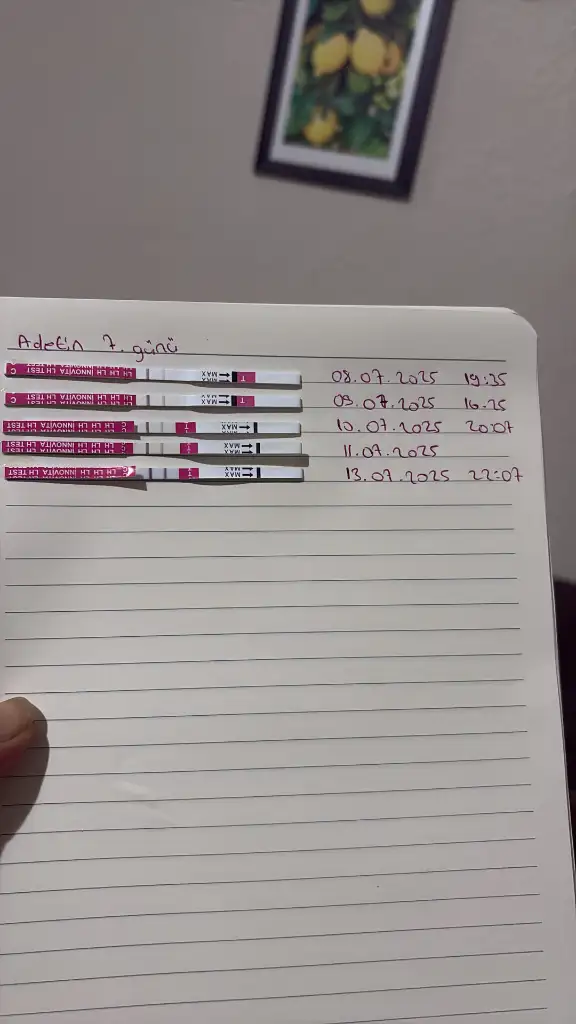 Adetin 7. günü
C INNOVITA LH TEST LH LH LH MAX T 08.07.2025 19:35
C INNOVITA LH TEST LH LH LH MAX T 09.07.2025 16:25
INNOVITA LH TEST LH LH LH C T MAX 10.07.2025 20:07
INNOVITA LH TEST LH LH LH C T MAX 11.07.2025
INNOVITA LH TEST LH LH LH C T MAX 13.07.2025 22:07